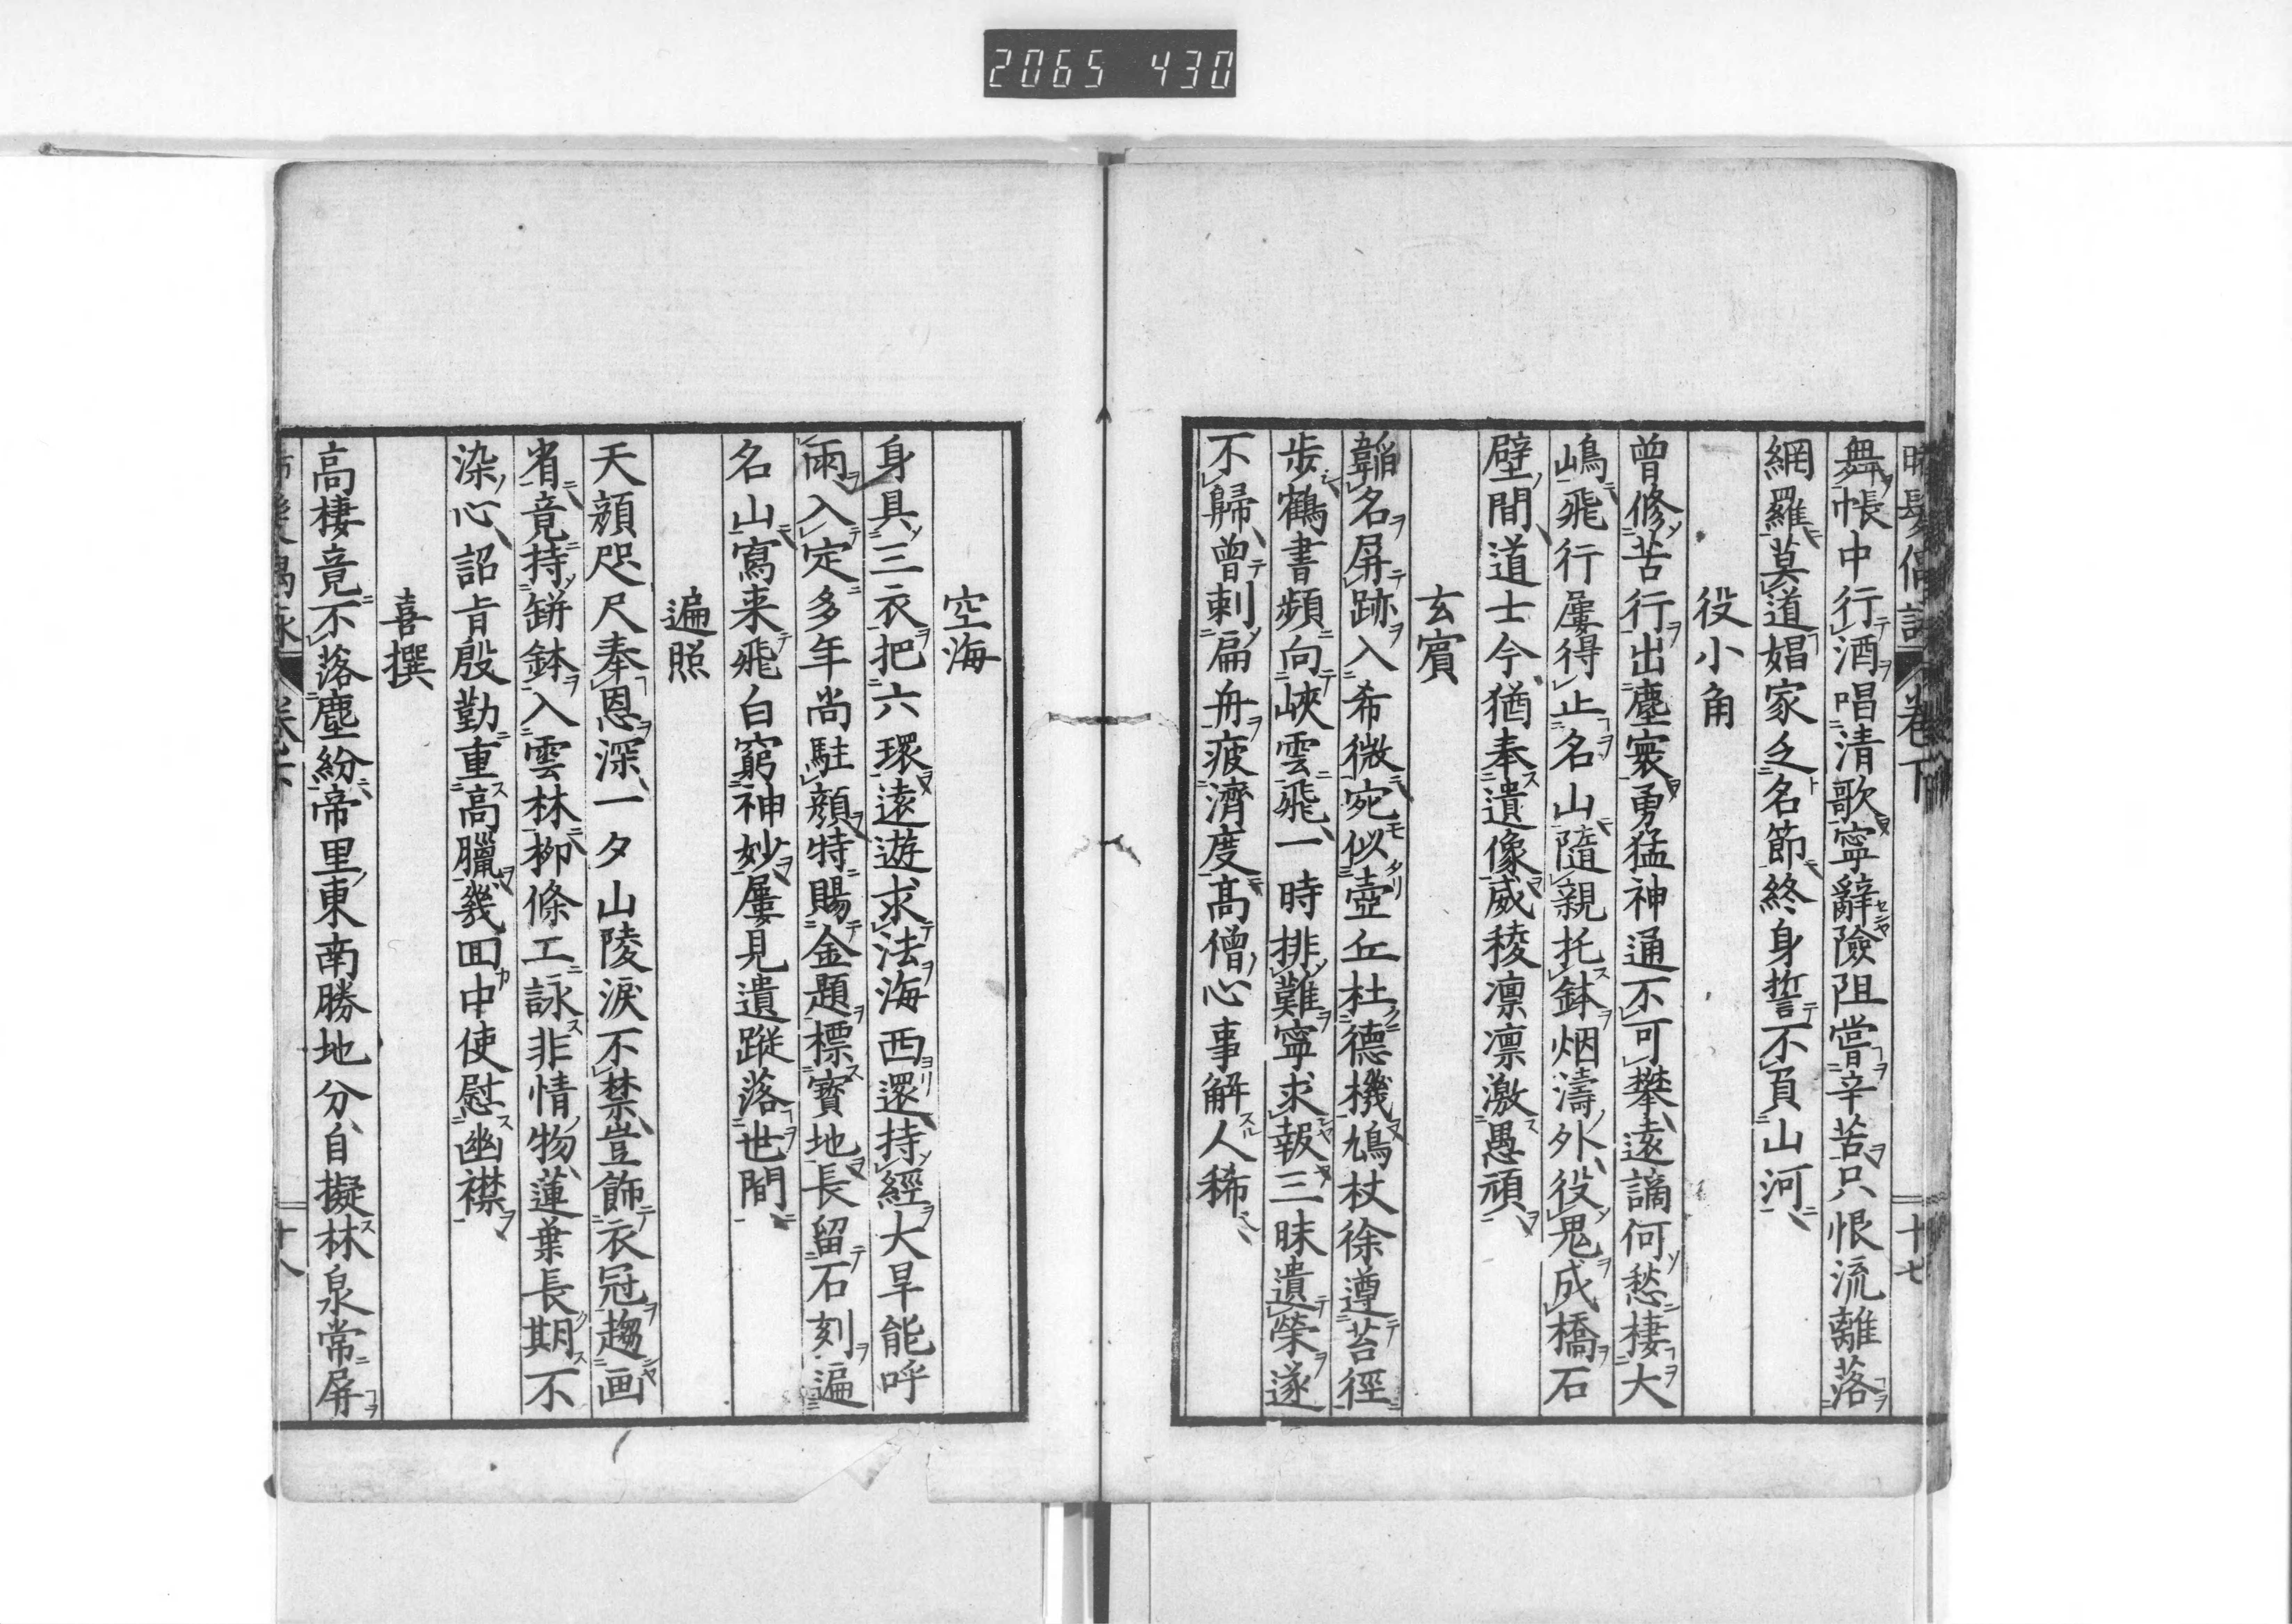 2065 430
卷下
十七
舞帳中行酒唱清歌寧辭險阻嘗辛苦只恨流離落
網羅莫道娼家乏名節終身誓不負山河
役小角
曾修苦行出塵寰勇猛神通不可攀遠謫何愁棲大
嶋飛行屢得止名山隨親托鉢烟濤外役鬼成橋石
壁間道士今猶奉遺像威稜凛凛激愚頑
玄賓
韜名屏跡入希微宛似壺丘杜德機鳩杖徐遵苔徑
步鶴書頻向峽雲飛一時排難寧求報三昧遺榮遂
不歸曾刺扁舟疲濟度高僧心事解人稀
空海
身具三衣把六環遠遊求法海西還持經大旱能呼
雨入定多年尚駐顏特賜金題標寶地長留石刻遍
名山寫来飛白窮神妙屢見遺蹤落世間
遍照
天顏咫尺奉恩深一夕山陵淚不禁豈飾衣冠趨画
省竟持缾鉢入雲林柳條工詠非情物蓮葉長期不
染心詔肯殷勤重高臘幾回中使慰幽襟
喜撰
高棲竟不落塵紛帝里東南勝地分自擬林泉常屏
十八